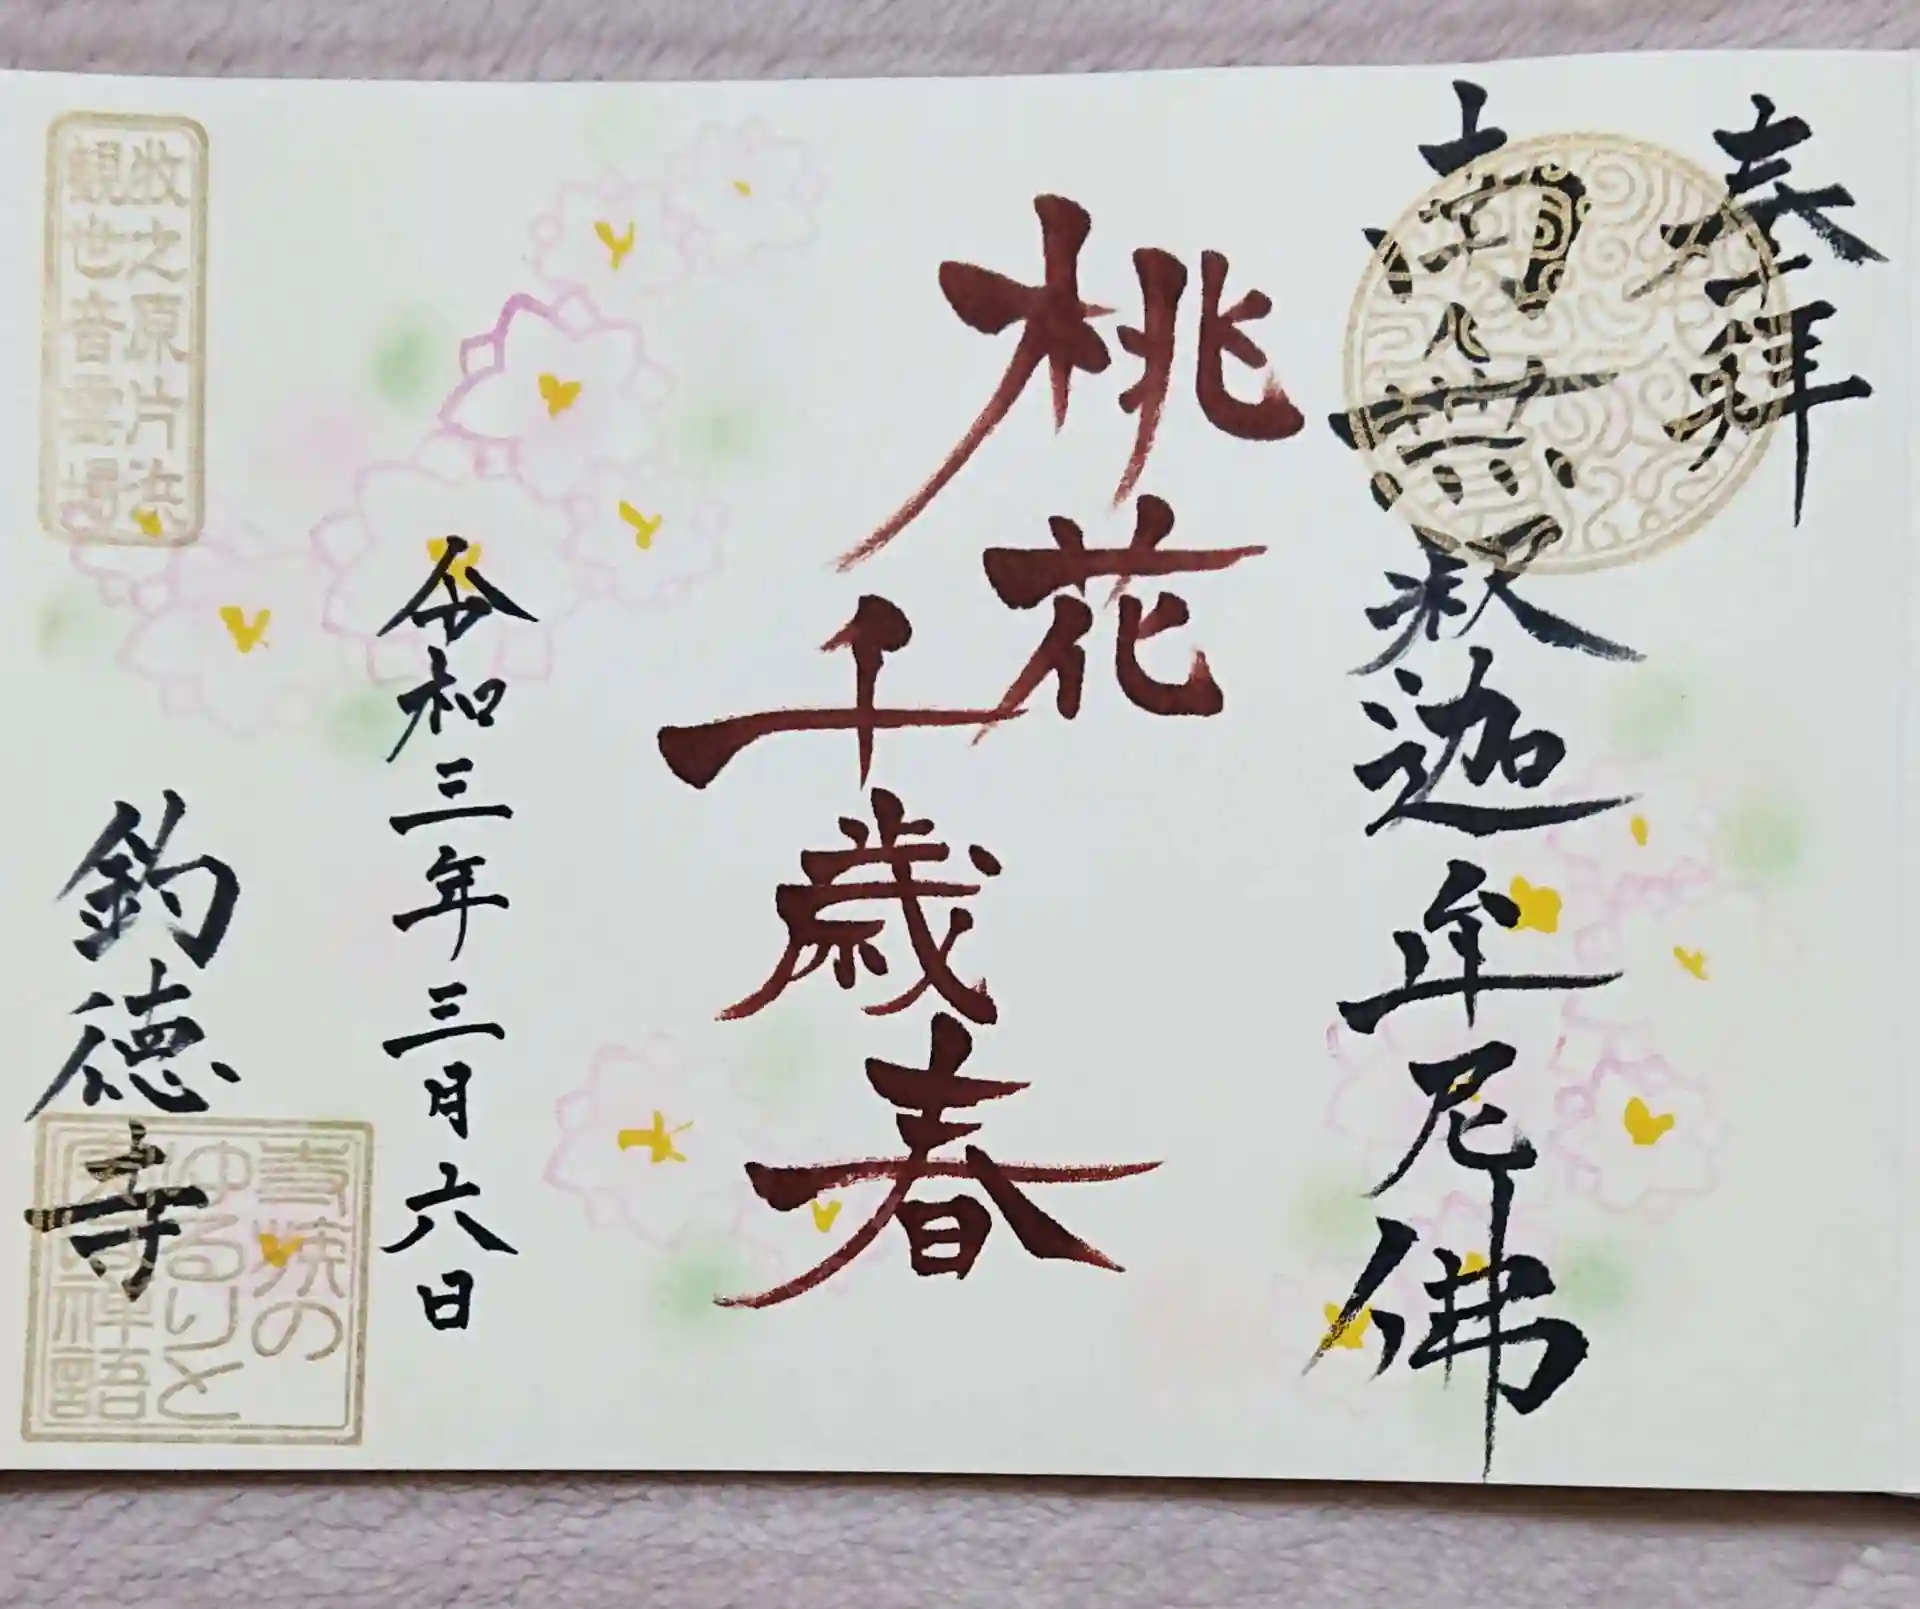 奉拝
南無釈迦牟尼佛
桃花
千歳春
令和三年三月六日
釣徳寺
牧之原片浜
観世音霊場
ゆるりと
禅語